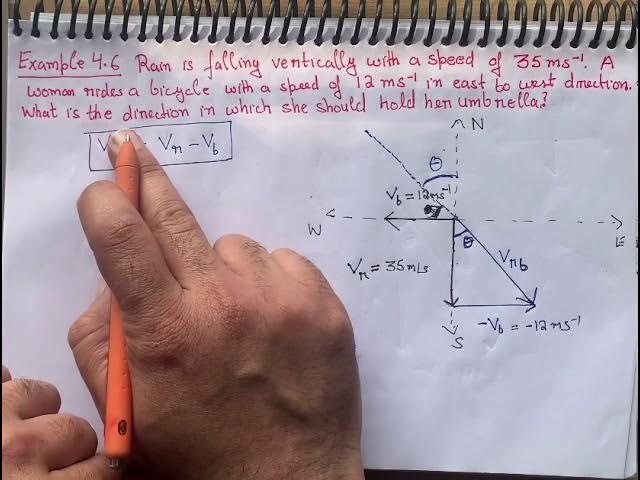 Example 4.6 Rain is falling vertically with a speed of 35 ms⁻¹. A
woman rides a bicycle with a speed of 12 ms⁻¹ in east to west direction.
What is the direction in which she should hold her umbrella?
V Vr - Vb
N
θ
Vb = 12 ms⁻¹
W
E
θ
Vrb
Vr = 35 m/s
-Vb = -12 ms⁻¹
S